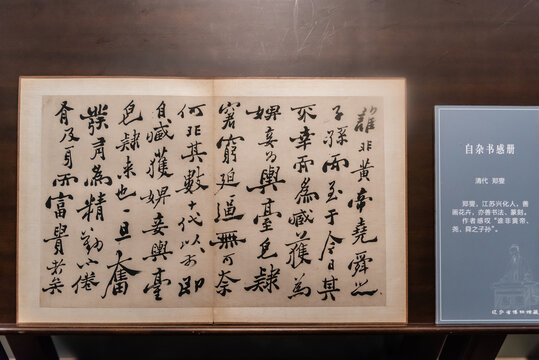 誰非黄帝堯舜之
子孫而至于今日其
不幸而為臧獲為
婢妾為輿臺皂隸
窘窮迫逼無可奈
何非其數十代以前即
自臧獲婢妾輿臺
皂隸来也一旦奮
發有為精勤不倦
有及身而富貴者矣
自杂书感册
清代 郑燮
郑燮,江苏兴化人,善
画花卉,亦善书法、篆刻。
作者感叹“谁非黄帝、
尧、舜之子孙”。
辽宁省博物馆藏